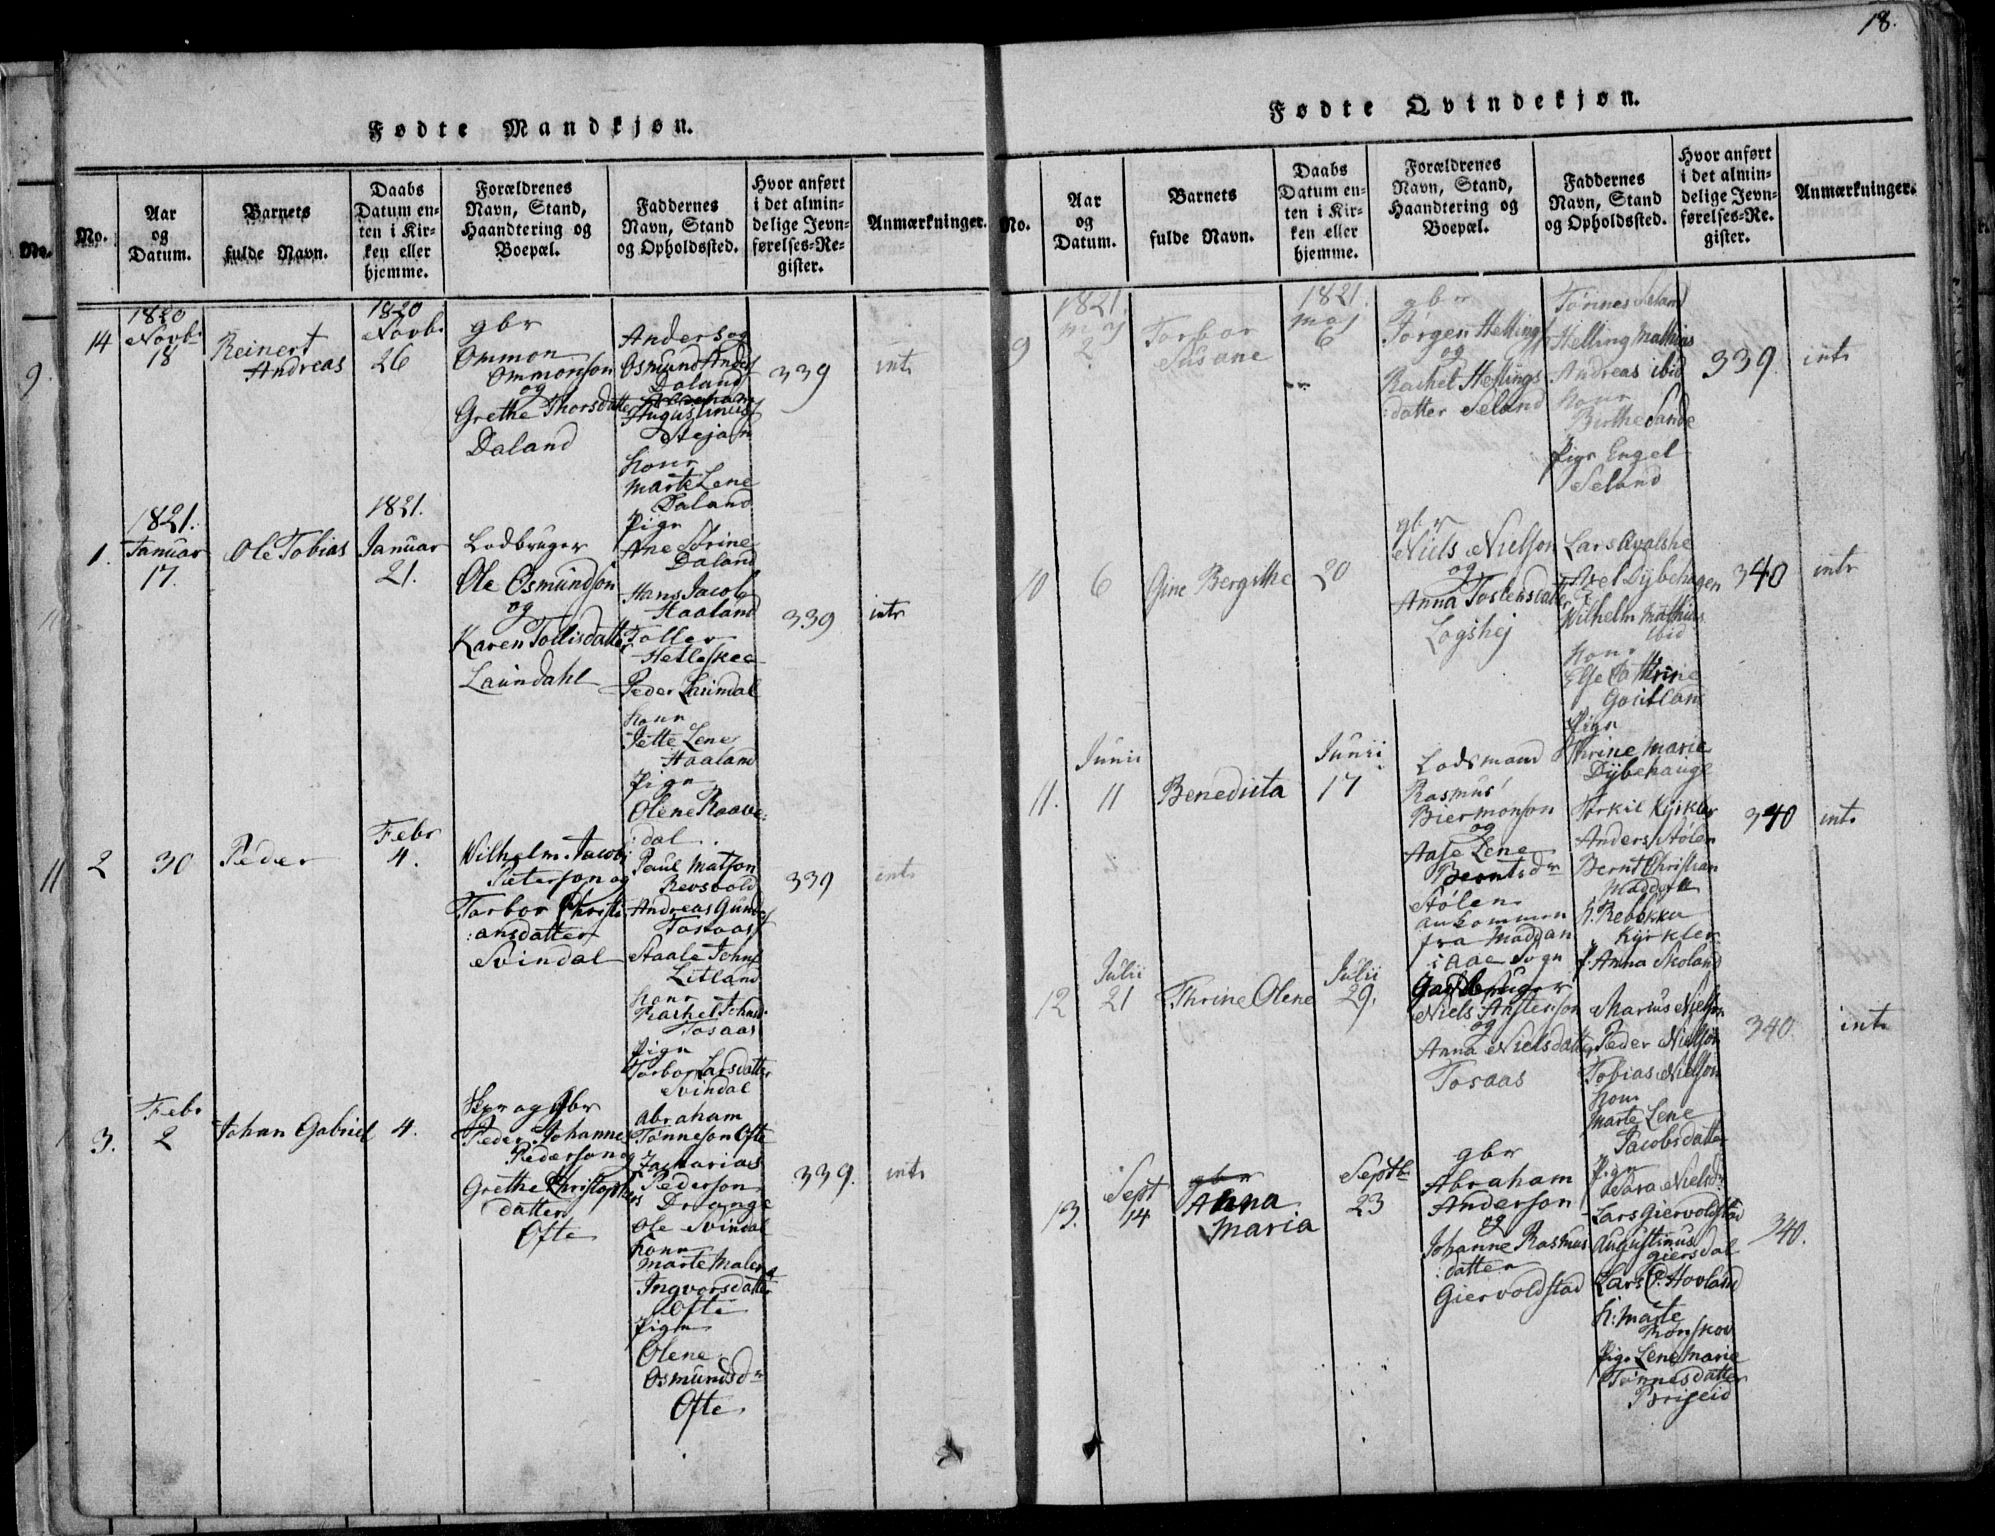 18.
Fødte Mandkjøn.
No.
Aar
og
Datum.
Barnets
fulde Navn.
Daabs
Datum en-
ten i Kir-
ken eller
hjemme.
Forældrenes
Navn, Stand,
Haandtering og
Boepæl.
Faddernes
Navn, Stand
og Opholdssted.
Hvor anført
i det almin-
delige Jevn-
førelses-Re-
gister.
Anmærkninger.
14
1820
Novbr
18
Reinert
Andreas
1820
Novbr
26
gbr
Ommon
Ommonson
og
Grethe Thorsdatter
Daland
Anders og
Osmund Anders
Daland
Augustinus
Stejan
Konr
Marte Lene
Daland
Pigr
Ane Serine
Daland
339
intr
1.
1821.
Januar
17.
Ole Tobias
1821.
Januar
21.
Lodbruger
Ole Osmundson
og
Karen Tollisdatter
Laundahl
Hans Jacob
Haaland
Toller
Hetleskee
Peder Laundal
Konr
Jette Lene
Haaland
Pigr
Olene Raave:
:dal
339
intr
2
30
Peder
Febr
4.
Wilhelm Jacob
Peterson og
Torbor Christi
:ansdatter
Svindal
Paul Matson
Revsvold
Andreas Gunds
Tosaas
Staale Johns
Litland
Konr
Rachel Johans
Tosaas
Pigr
Torbor Larsdatter
Svindal
339
intr
3.
Febr
2
Johan Gabriel
4.
Skpr og Gbr
Peder Johannes
Pederson og
Grethe Christophers
datter
Ofte
Abraham
Tønneson Ofte
Zacharias
Pederson
Drange
Ole Svindal
Konr
Marte Malena
Ingvorsdatter
Ofte
Pigr
Olene
Osmundsdr
Ofte
339.
intr
Fødte Qvindekjøn.
No.
Aar
og
Datum.
Barnets
fulde Navn.
Daabs
Datum en-
ten i Kir-
ken eller
hjemme.
Forældrenes
Navn, Stand,
Haandtering og
Boepæl.
Faddernes
Navn, Stand
og Opholdssted.
Hvor anført
i det almin-
delige Jevn-
førelses-Re-
gister.
Anmærkninger.
9
1821.
Maj
2.
Torbor
Susane
1821.
Maj
6
gbr
Jørgen Hellings
og
Rachel Hellings
:datter Seland
Tønnes Seland
Helling Mathias
Andreas ibid
Konr
Birthe Sande
Pigr Engel
Seland
339
intr
10
6
Gine Bergithe
20
gbr
Niels Nielson
og
Anna Tostensdatter
Logshej
Lars Qvalshe
Axel Dybehagen
Wilhelm Mathias
ibid
Konr
Else Cathrine
Goutland
Pigr
Thrine Marie
Dybehauge
340
intr
11.
Junii
11
Benedicta
Junii
17
Lodsmand
Rasmus
Biermonson
og
Aase Lene
Berntsdr
Stølen
ankommen
fra Maddan
i Aae Sogn
Torkil Kyrkler
Anders Stølen
Bernt Christian
Maddan
K. Rebekka
Kyrkler
p. Anna Skoland
340
intr
12
Julii
21
Thrine Olene
Julii
29.
Gaardbruger
Niels Anstenson
og
Anna Nielsdatter
Tosaas
Marius Nielson
Peder Nielson
Tobias Nielson
Kon
Marte Lene
Jacobsdatter
Pigr
Sara Nielsdr
340.
intr
13.
Sept
14
gbr
Anna
Maria
Septbr
23
gbr
Abraham
Anderson
og
Johanne Rasmus
:datter
Giervoldstad
Lars Giervoldstad
Augustinus
Giersdal
Lars O. Hovland
K: Marte
Rønskov
Pigr Lene Marie
Tønnesdatter
Briseid
340.